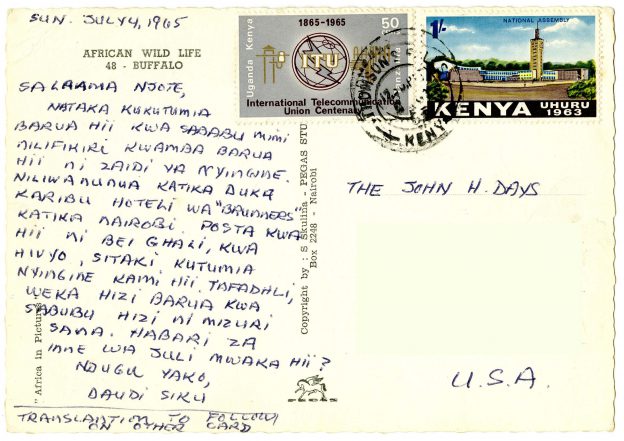 SUN. JULY 4, 1965
AFRICAN WILD LIFE
48 - BUFFALO
SALAAMA NJOTE,
NATAKA KUKUTUMIA
BARUA HII KWA SABABU MIMI
NILIFIKIRI KWAMBA BARUA
HII NI ZAIDI YA NYINGINE.
NILIWANUNUA KATIKA DUKA
KARIBU HOTELI WA "BRUNNERS"
KATIKA NAIROBI. POSTA KWA
HII NI BEI GHALI, KWA
HIVYO, SITAKI KUTUMIA
NYINGINE KAMI HII. TAFADHLI,
WEKA HIZI BARUA KWA
SABUBU HIZI NI MIZURI
SANA. HABARI ZA
INNE WA JULI MWAKA HII?
NDUGU YAKO,
DAUDI SIKU
TRANSLANTION TO FOLLOW
ON OTHER CARD
"Africa in Pictures"
Copyright by : S Skulina - PEGAS STU
Box 2248 - Nairobi
PEGAS
1865-1965
50
Uganda Kenya
Tanzania
ITU
International Telecommunication
Union Centenary
1/-
NATIONAL ASSEMBLY
KENYA UHURU
1963
KENYA
THE JOHN H. DAYS
U.S.A.